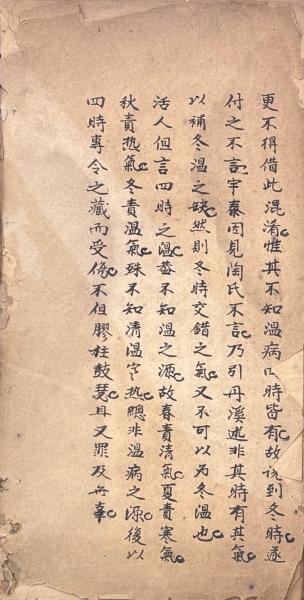 更不得借此混淆惟其不知温病四時皆有故說到冬時遂
付之不言宇泰因見陶氏不記乃引丹溪述非其時有其氣
以補冬温之缺然則冬時交錯之氣又不可以为冬温也
活人但言四時之温蓋不知温之源故春責清氣夏責寒氣
秋責热氣冬責温氣殊不知清温寒热總非温病之源後以
四時專令之藏而受傷不但膠柱鼓瑟且又罪及無辜